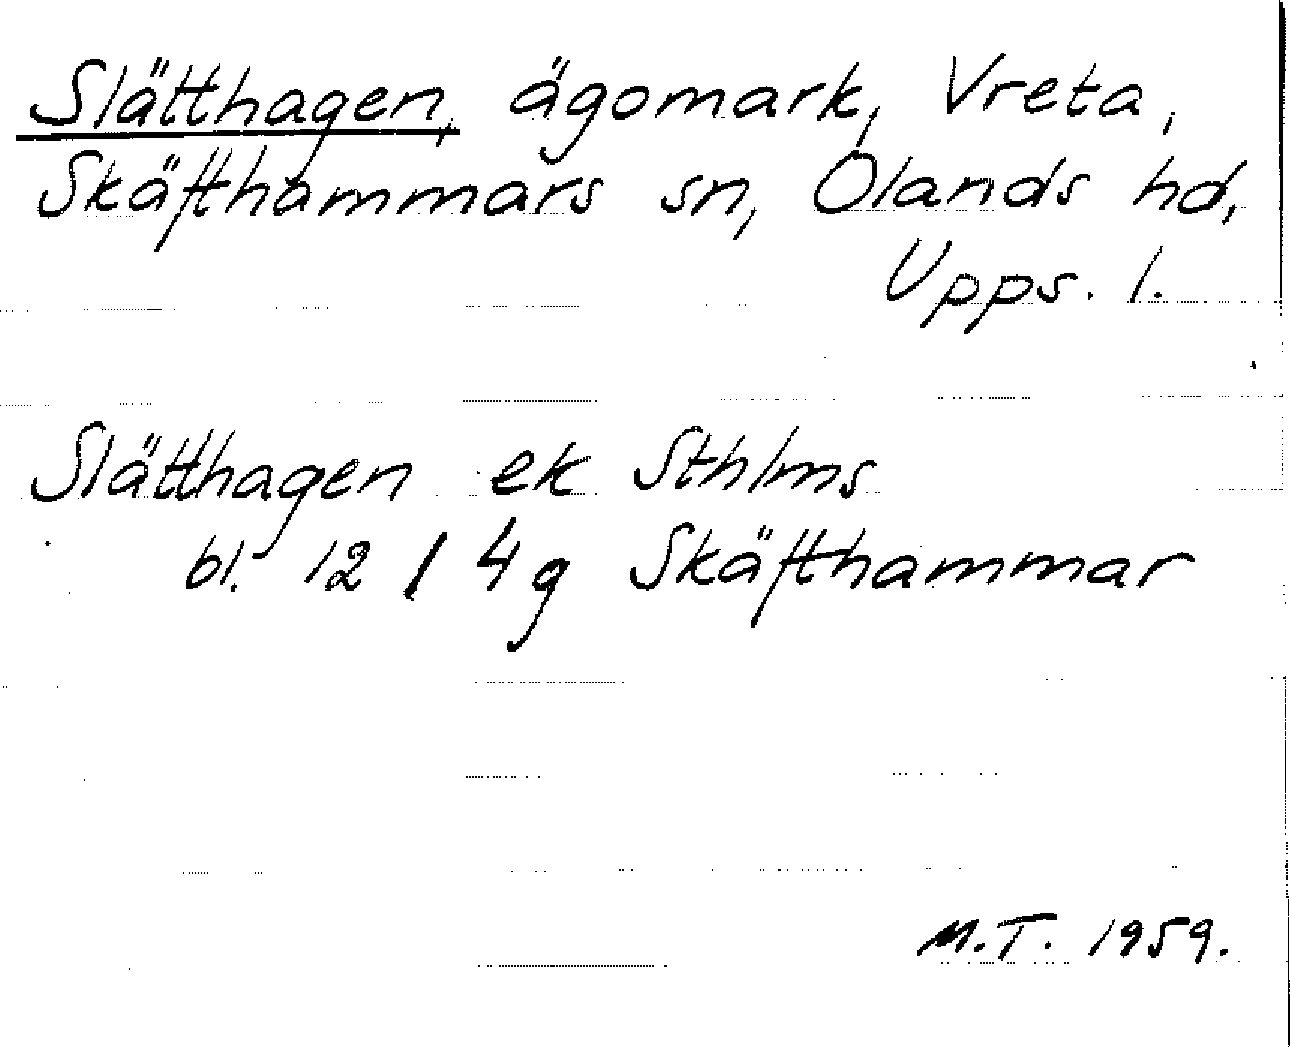 Slätthagen, ägomark, Vreta,
Skäfthammars sn, Olands hd,
Upps. l.
Slätthagen ek Sthlms
bl. 12 / 4 g Skäfthammar
M.T. 1959.